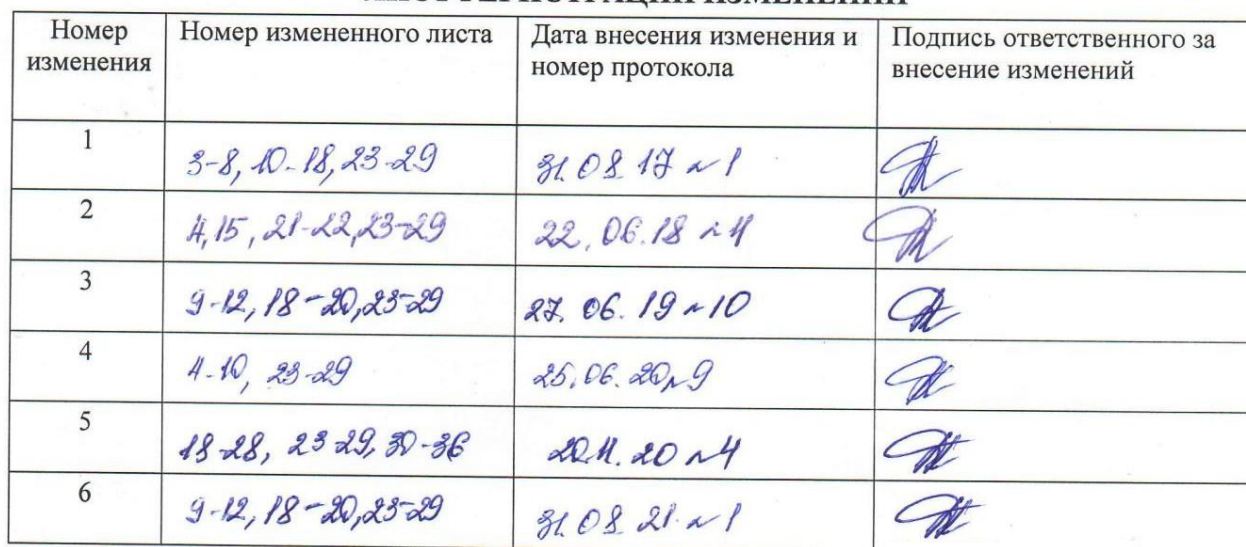 ЛИСТ РЕГИСТРАЦИИ ИЗМЕНЕНИЙ
Номер изменения
Номер измененного листа
Дата внесения изменения и номер протокола
Подпись ответственного за внесение изменений
1
3-8, 10-18, 23-29
31.08.17 №1
2
4, 15, 21-22, 23-29
22.06.18
3
9-12, 18-20, 23-29
27.06.19 №10
4
4-10, 23-29
25.06.20 №9
5
18-28, 23-29, 30-36
20.11.20 №4
6
9-12, 18-20, 23-29
31.08.21 №1